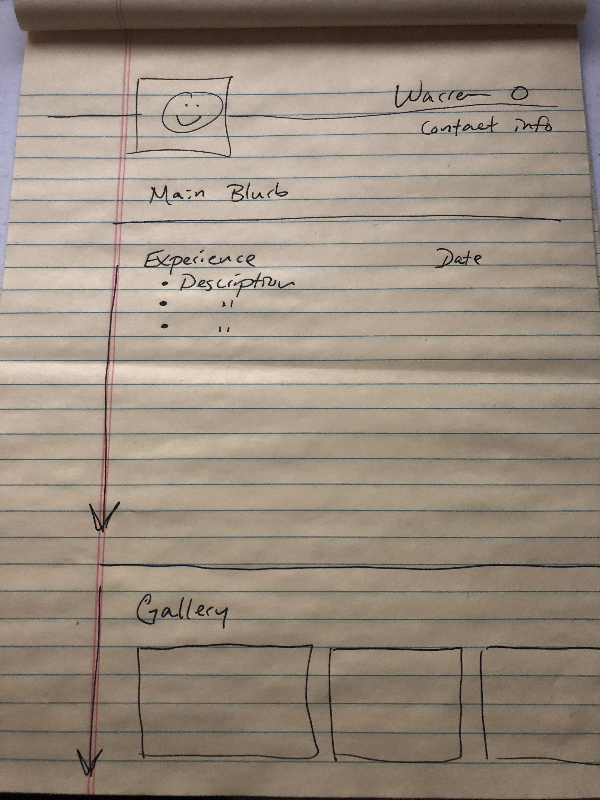 Warren O
Contact info
Main Blurb
Experience Date
• Description
• "
• "
Gallery